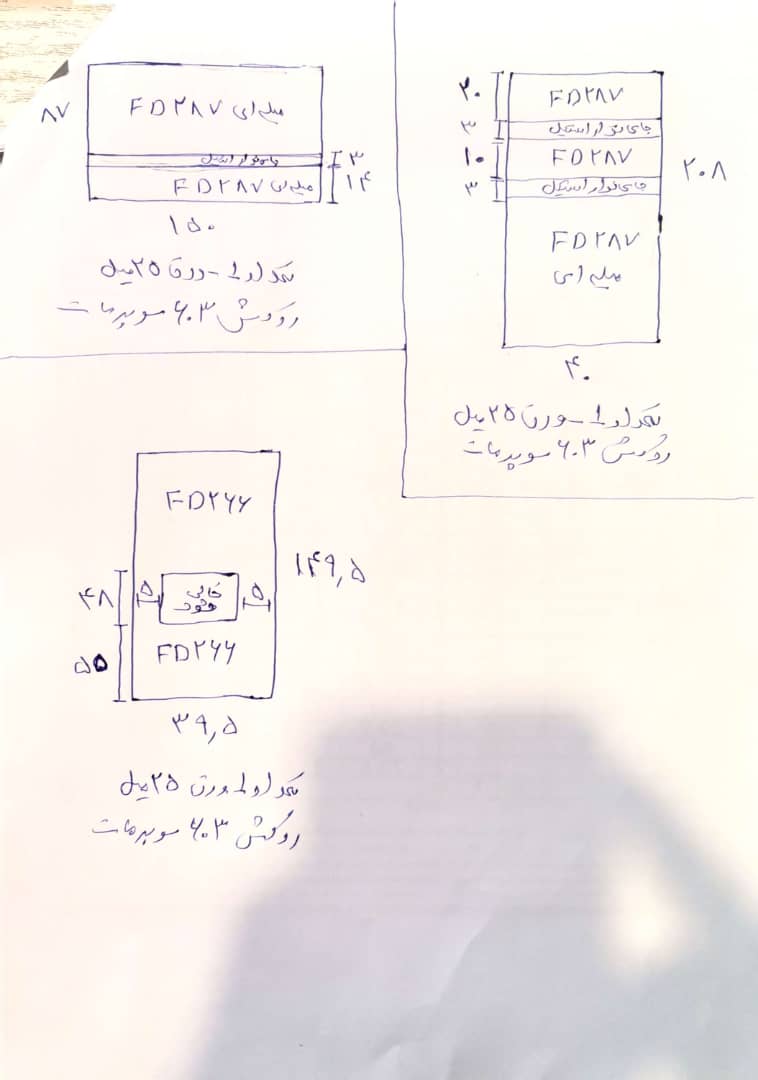 FD۲۸۷ میله ای
۸۷
جای نوار استیل
۳
FD۲۸۷ میله ای
۱۴
۱۵۰
یکعدد اول - ورق ۲۵ میل
روکش ۶۰۳ سوپرمات
۲۰
FD۲۸۷
۳
جای نوار استیل
۱۰
FD۲۸۷
۲۰۸
۳
جای نوار استیل
FD۲۸۷
میله ای
۴۰
یکعدد اول - ورق ۲۵ میل
روکش ۶۰۳ سوپرمات
FD۲۶۶
۱۴۹,۵
۴۸
۵
خالی
شود
۵
۵۵
FD۲۶۶
۳۹,۵
ورق ۲۵ میل
روکش ۶۰۳ سوپرمات